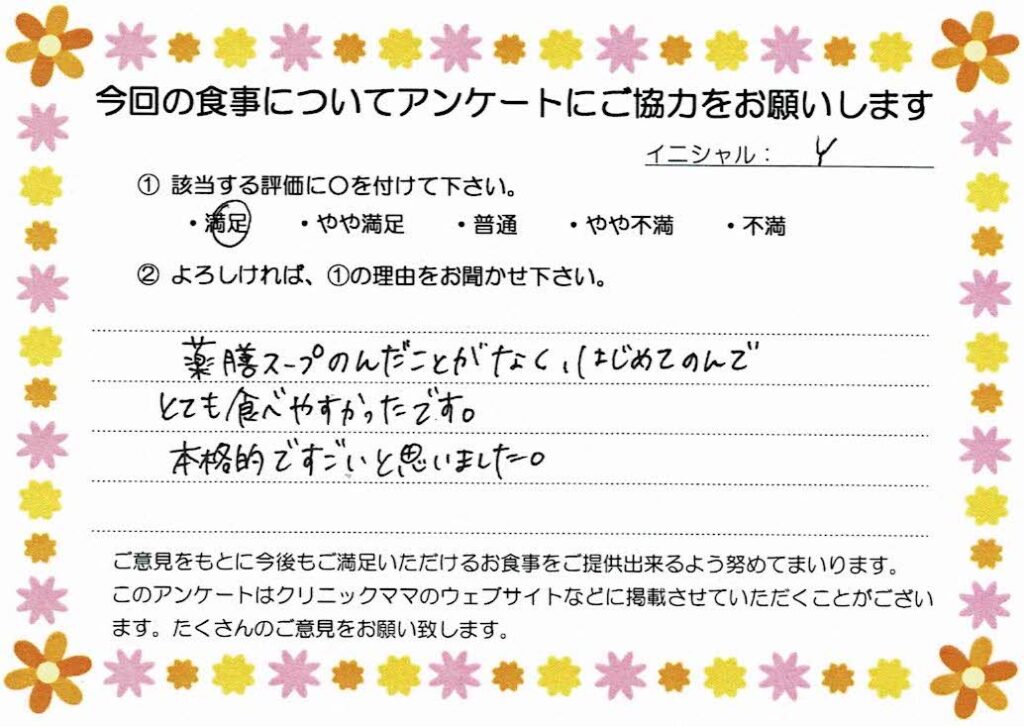 今回の食事についてアンケートにご協力をお願いします
イニシャル: Y
① 該当する評価に〇を付けて下さい。
・満足 ・やや満足 ・普通 ・やや不満 ・不満
② よろしければ、①の理由をお聞かせ下さい。
薬膳スープのんだことがなく、はじめてのんで
とても食べやすかったです。
本格的ですごいと思いました。
ご意見をもとに今後もご満足いただけるお食事をご提供出来るよう努めてまいります。
このアンケートはクリニックママのウェブサイトなどに掲載させていただくことがござい
ます。たくさんのご意見をお願い致します。